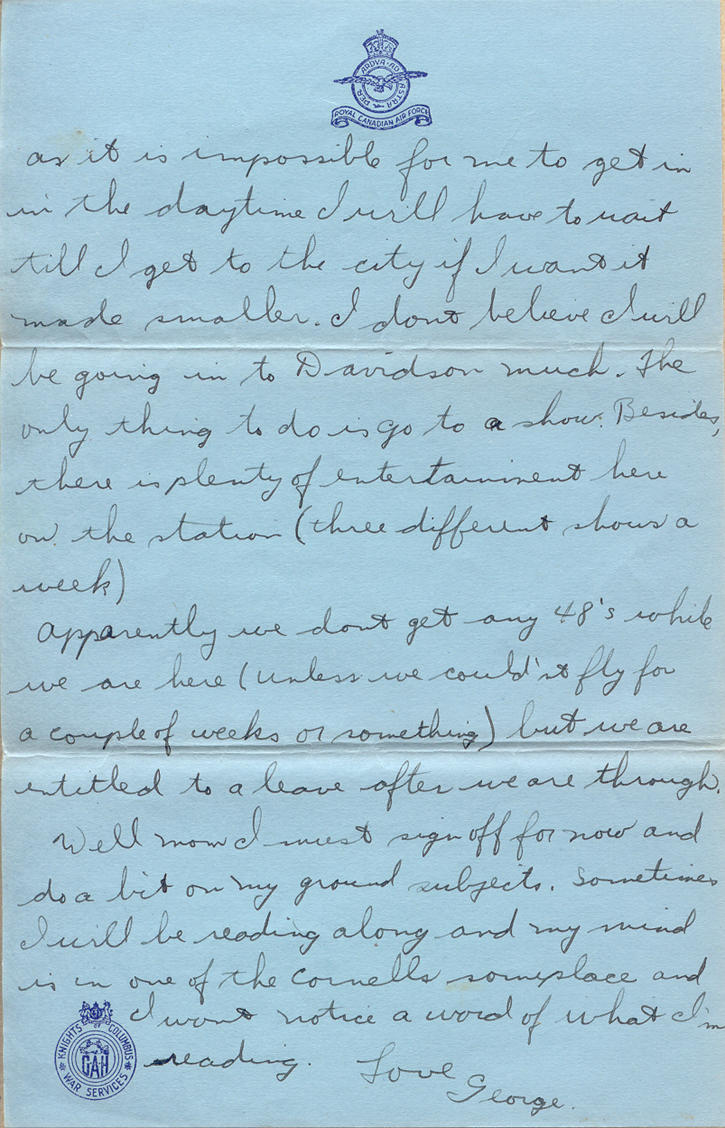 PER ARDVA AD ASTRA
ROYAL CANADIAN AIR FORCE
as it is impossible for me to get in
in the daytime I will have to wait
till I get to the city if I want it
made smaller. I dont believe I will
be going in to Davidson much. The
only thing to do is go to a show. Besides,
there is plenty of entertainment here
on the station (three different shows a
week)
Apparently we dont get any 48's while
we are here (unless we could'nt fly for
a couple of weeks or something) but we are
entitled to a leave after we are through.
Well mom I must sign off for now and
do a bit on my ground subjects. Sometimes
I will be reading along and my mind
is in one of the Cornells someplace and
I wont notice a word of what I'm
reading.
Love
George.
KNIGHTS OF COLUMBUS
CAH
WAR SERVICES